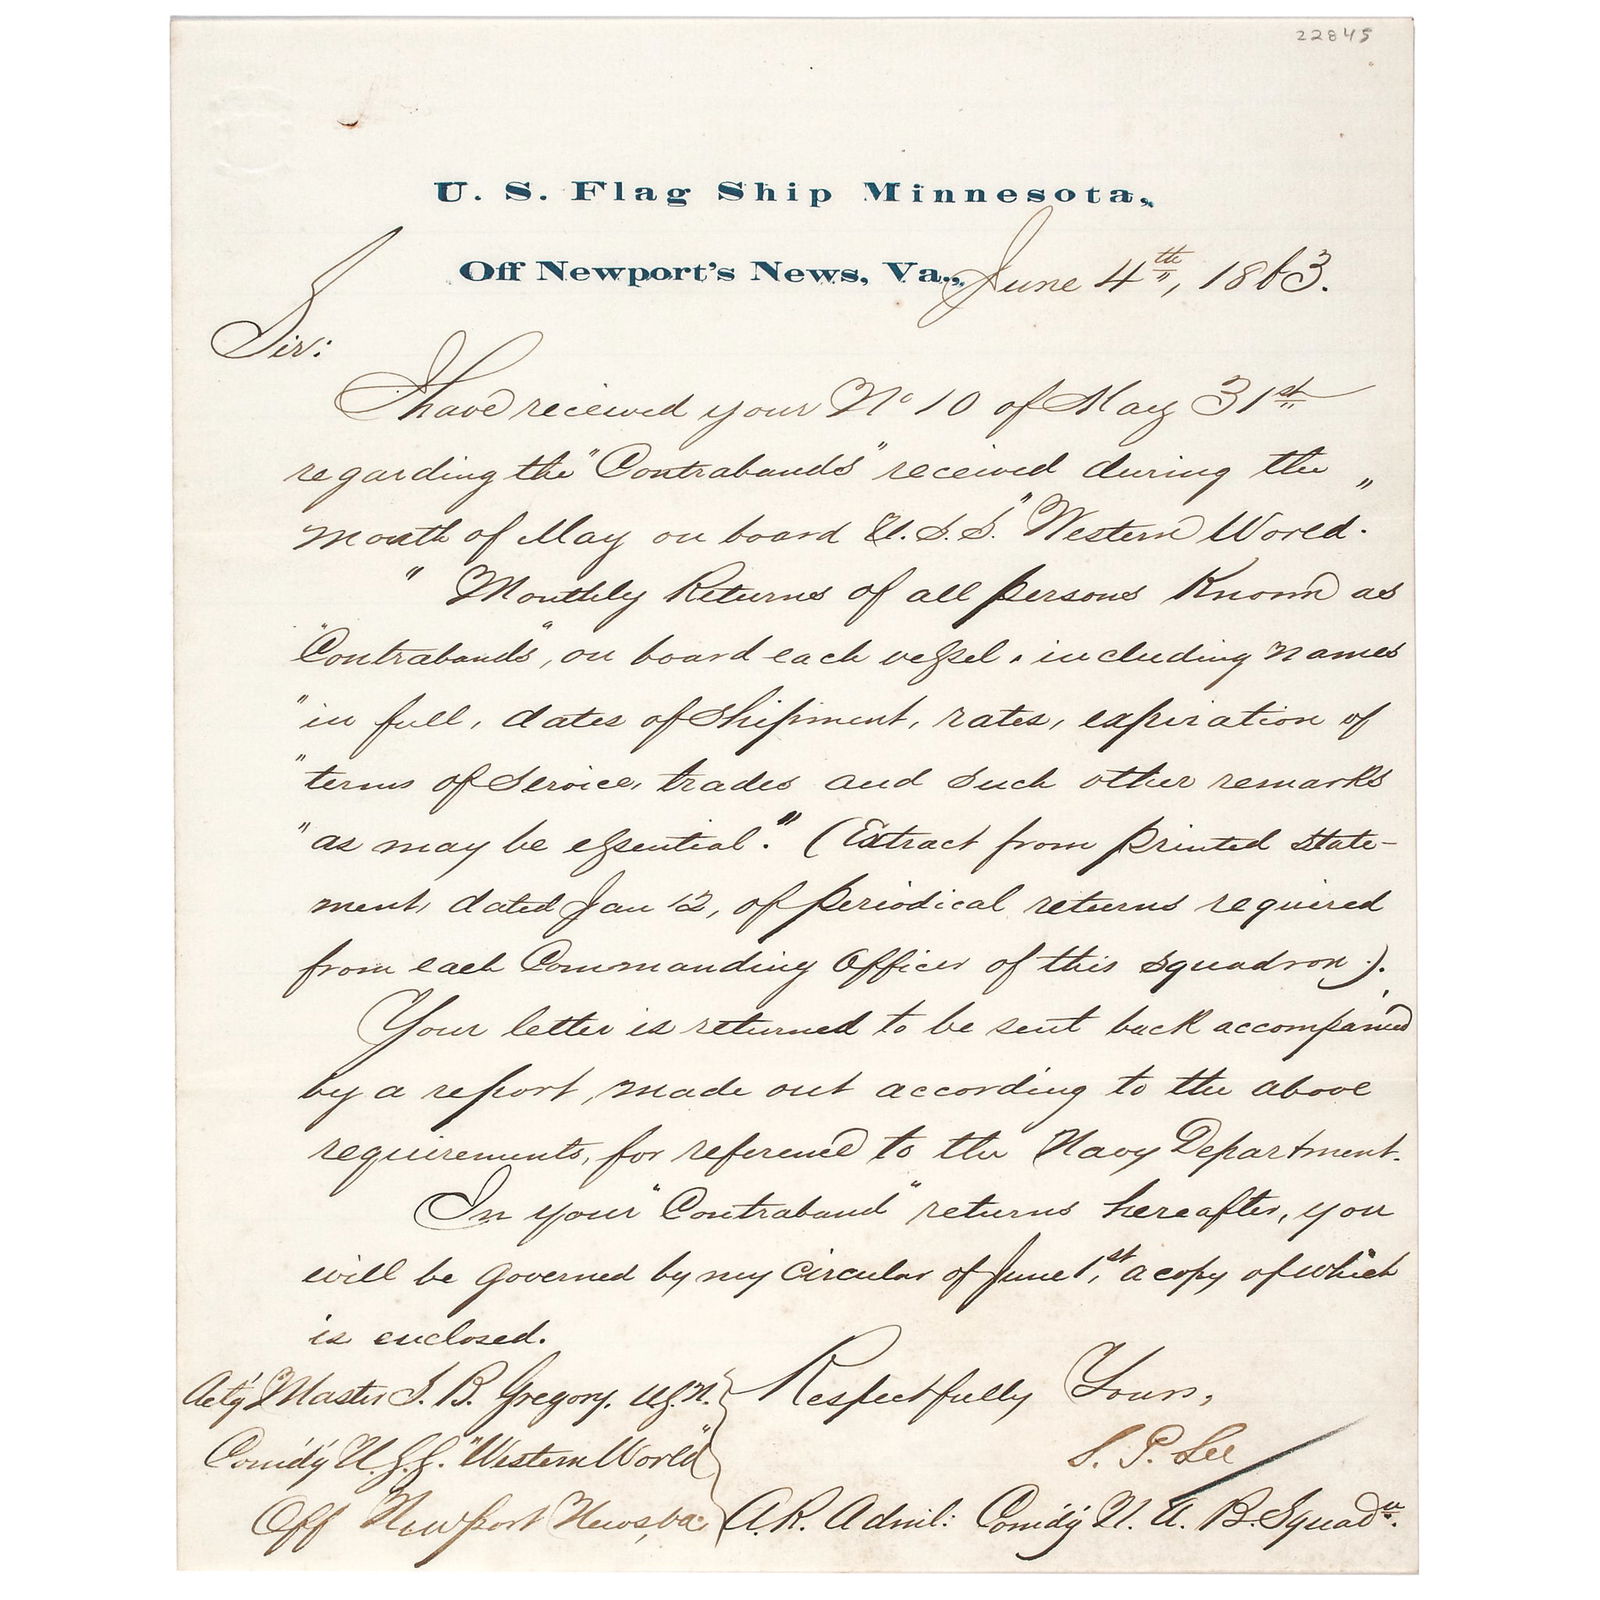 22845
U. S. Flag Ship Minnesota,
Off Newport's News, Va., June 4th, 1863.
Sir:
I have received your No 10 of May 31st
regarding the "Contrabands" received during the
month of May on board U.S.S. "Western World."
" Monthly Returns of all persons Known as
"Contrabands", on board each vessel, including names
"in full, dates of Shipment, rates, expiration of
"terms of Service, trades and such other remarks
"as may be essential." (Extract from printed state-
ment, dated Jan 12, of periodical returns required
from each Commanding Officer of this Squadron).
Your letter is returned to be sent back accompanied
by a report, made out according to the above
requirements, for reference to the Navy Department.
In your "Contraband" returns hereafter, you
will be governed by my Circular of June 1st, a copy of which
is enclosed.
Respectfully Yours,
S. P. Lee
A.R. Adml: Comdg N. A. B. Squadn.
Actg Master S. B. Gregory, U.S.N.
Comdg U.S.S. "Western World"
Off Newport News, Va